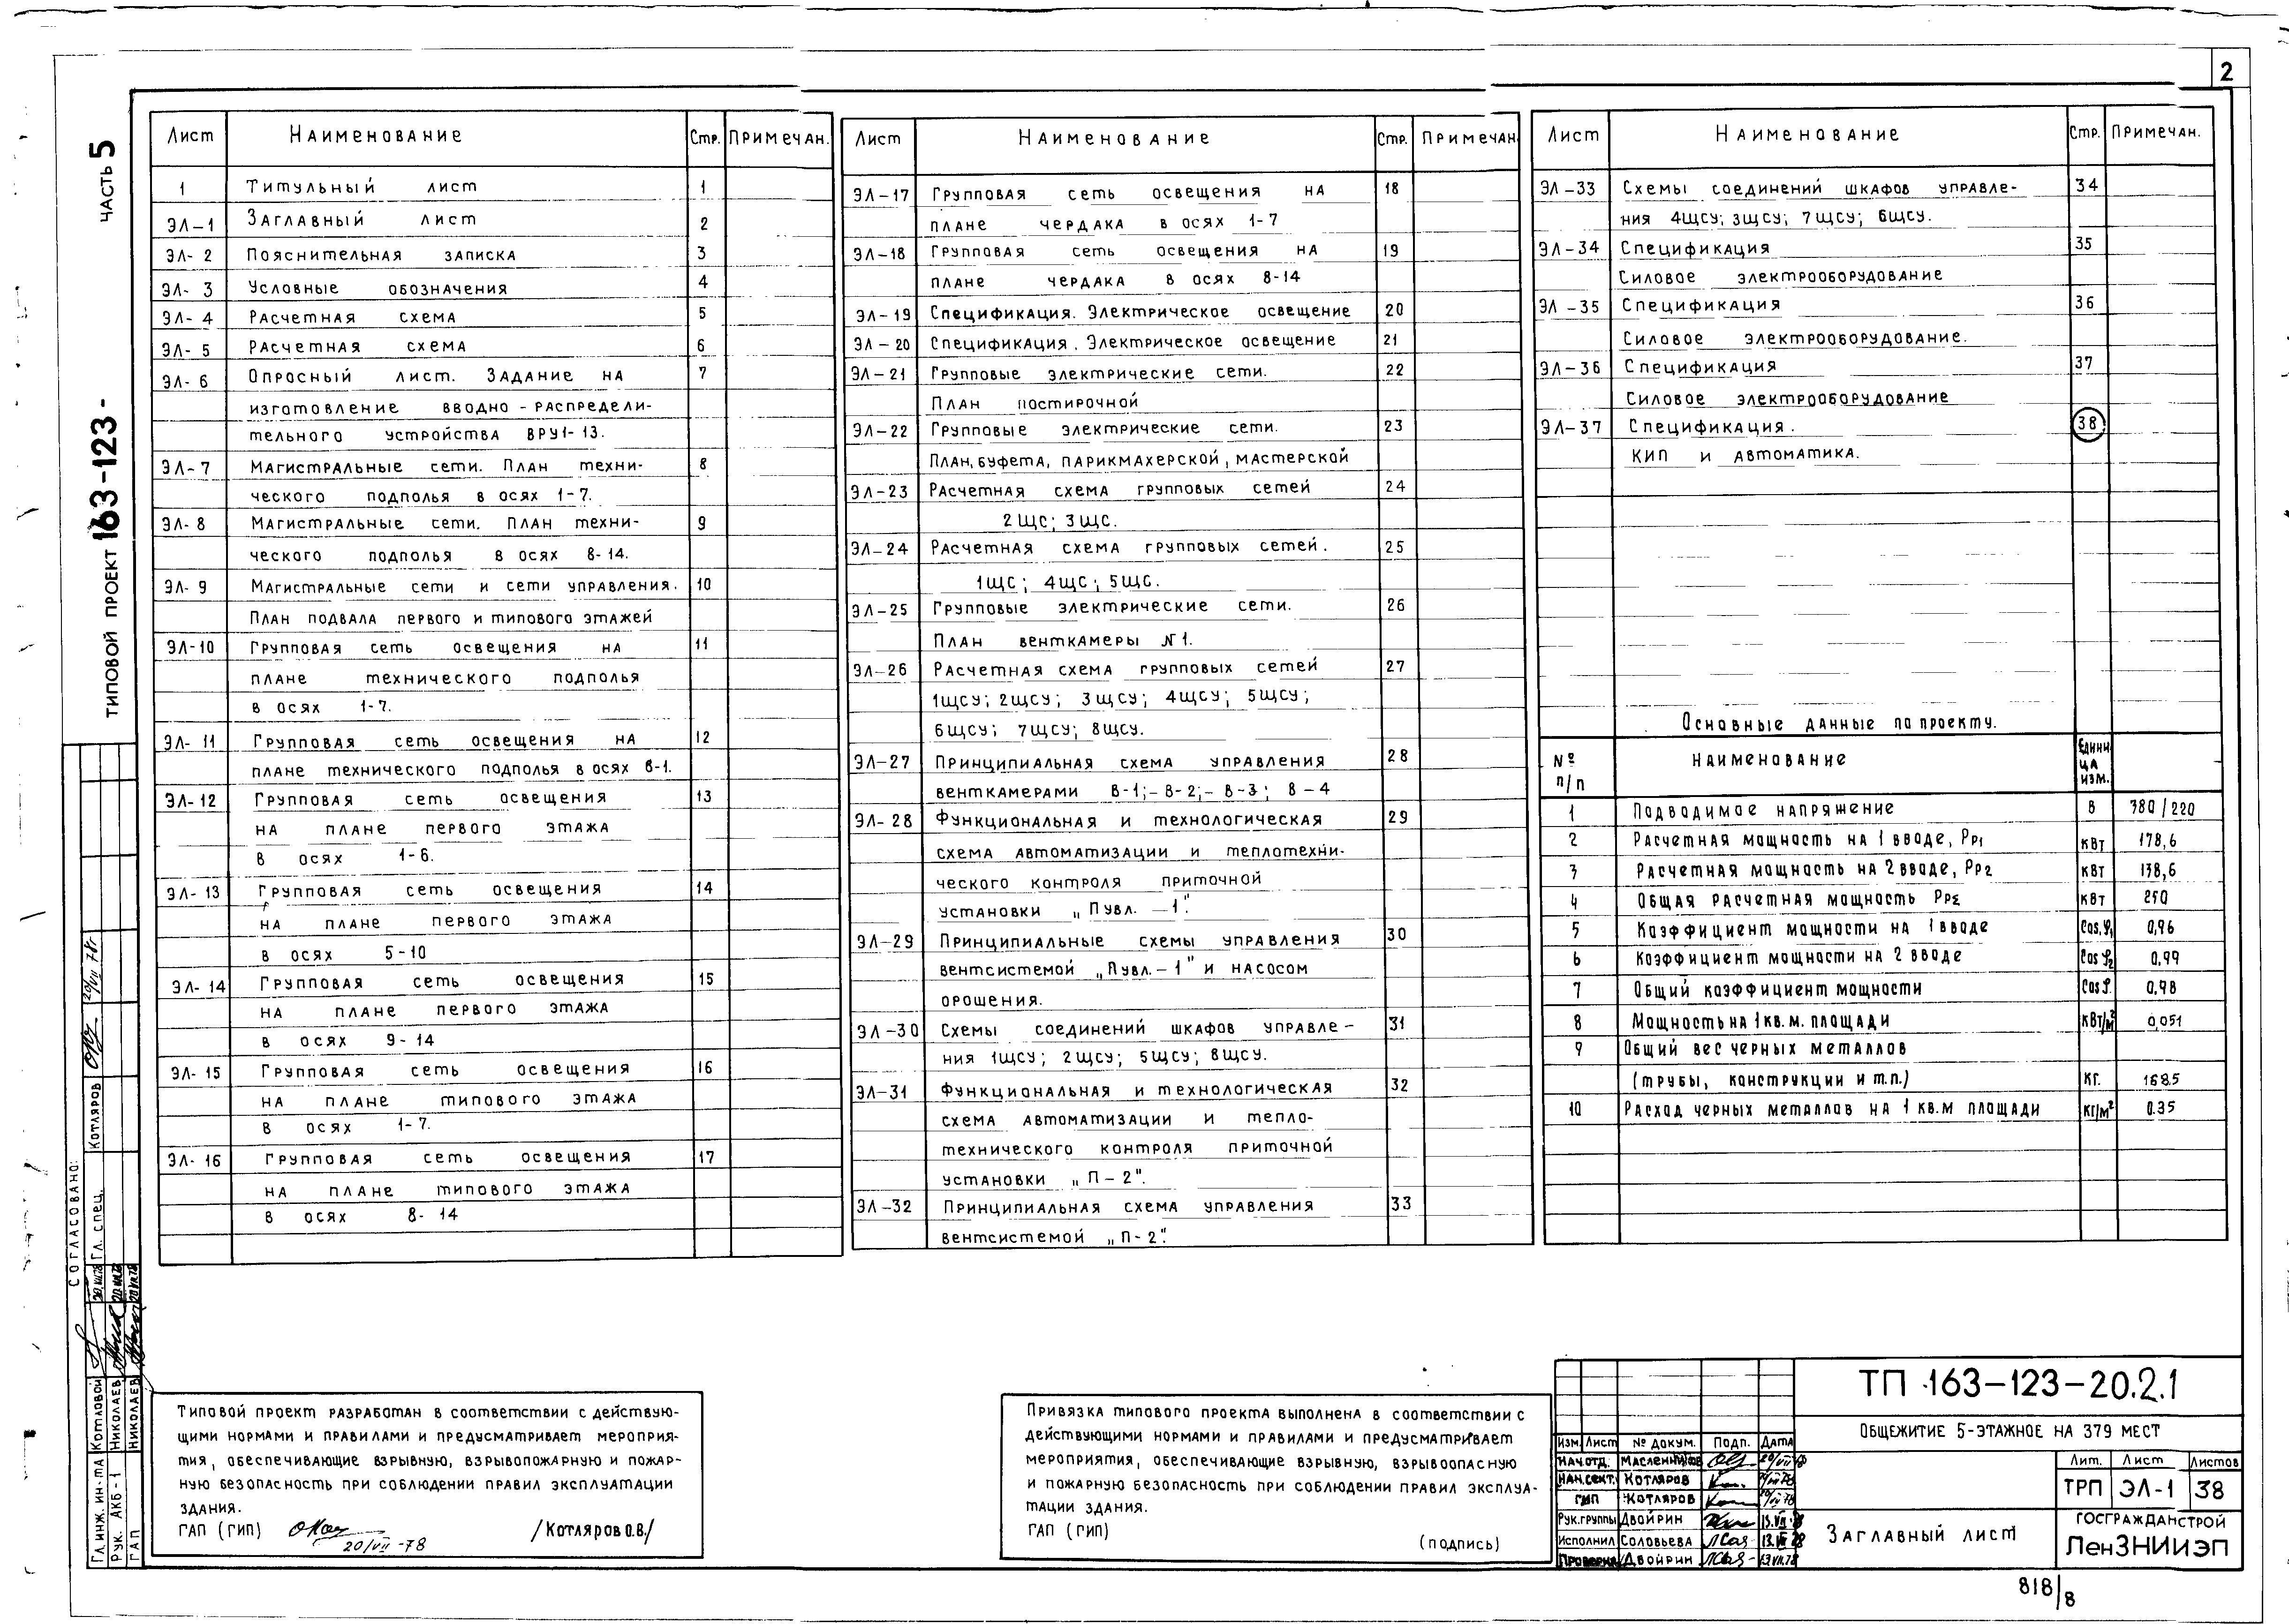 2
ЧАСТЬ 5
ТИПОВОЙ ПРОЕКТ 163-123-
Лист Наименование Стр. Примечан.
1 Титульный лист 1
ЭЛ-1 Заглавный лист 2
ЭЛ-2 Пояснительная записка 3
ЭЛ-3 Условные обозначения 4
ЭЛ-4 Расчетная схема 5
ЭЛ-5 Расчетная схема 6
ЭЛ-6 Опросный лист. Задание на 7
изготовление вводно-распредели-
тельного устройства ВРУ1-13.
ЭЛ-7 Магистральные сети. План техни- 8
ческого подполья в осях 1-7.
ЭЛ-8 Магистральные сети. План техни- 9
ческого подполья в осях 8-14.
ЭЛ-9 Магистральные сети и сети управления. 10
План подвала первого и типового этажей
ЭЛ-10 Групповая сеть освещения на 11
плане технического подполья
в осях 1-7.
ЭЛ-11 Групповая сеть освещения на 12
плане технического подполья в осях 8-1.
ЭЛ-12 Групповая сеть освещения 13
на плане первого этажа
в осях 1-6.
ЭЛ-13 Групповая сеть освещения 14
на плане первого этажа
в осях 5-10
ЭЛ-14 Групповая сеть освещения 15
на плане первого этажа
в осях 9-14
ЭЛ-15 Групповая сеть освещения 16
на плане типового этажа
в осях 1-7.
ЭЛ-16 Групповая сеть освещения 17
на плане типового этажа
в осях 8-14
Лист Наименование Стр. Примечан.
ЭЛ-17 Групповая сеть освещения на 18
плане чердака в осях 1-7
ЭЛ-18 Групповая сеть освещения на 19
плане чердака в осях 8-14
ЭЛ-19 Спецификация. Электрическое освещение 20
ЭЛ-20 Спецификация. Электрическое освещение 21
ЭЛ-21 Групповые электрические сети. 22
План постирочной
ЭЛ-22 Групповые электрические сети. 23
План, буфета, парикмахерской, мастерской
ЭЛ-23 Расчетная схема групповых сетей 24
2ЩС; 3ЩС.
ЭЛ-24 Расчетная схема групповых сетей. 25
1ЩС; 4ЩС; 5ЩС.
ЭЛ-25 Групповые электрические сети. 26
План венткамеры №1.
ЭЛ-26 Расчетная схема групповых сетей 27
1ЩСУ; 2ЩСУ; 3ЩСУ; 4ЩСУ; 5ЩСУ;
6ЩСУ; 7ЩСУ; 8ЩСУ.
ЭЛ-27 Принципиальная схема управления 28
венткамерами В-1;-В-2;-В-3; В-4
ЭЛ-28 Функциональная и технологическая 29
схема автоматизации и теплотехни-
ческого контроля приточной
установки „Пувл.-1".
ЭЛ-29 Принципиальные схемы управления 30
вентсистемой „Пувл.-1" и насосом
орошения.
ЭЛ-30 Схемы соединений шкафов управле- 31
ния 1ЩСУ; 2ЩСУ; 5ЩСУ; 8ЩСУ.
ЭЛ-31 Функциональная и технологическая 32
схема автоматизации и тепло-
технического контроля приточной
установки „П-2".
ЭЛ-32 Принципиальная схема управления 33
вентсистемой „П-2".
Лист Наименование Стр. Примечан.
ЭЛ-33 Схемы соединений шкафов управле- 34
ния 4ЩСУ; 3ЩСУ; 7ЩСУ; 6ЩСУ.
ЭЛ-34 Спецификация 35
Силовое электрооборудование
ЭЛ-35 Спецификация 36
Силовое электрооборудование.
ЭЛ-36 Спецификация 37
Силовое электрооборудование
ЭЛ-37 Спецификация. 38
КИП и автоматика.
Основные данные по проекту.
№ п/п Наименование Единица изм.
1 Подводимое напряжение В 380/220
2 Расчетная мощность на 1 вводе, Рр1 кВт 178,6
3 Расчетная мощность на 2 вводе, Рр2 кВт 138,6
4 Общая расчетная мощность РрΣ кВт 250
5 Коэффициент мощности на 1 вводе Cos φ1 0,96
6 Коэффициент мощности на 2 вводе Cos φ2 0,99
7 Общий коэффициент мощности Cos φ 0,98
8 Мощность на 1 кв.м. площади кВт/м² 0,051
9 Общий вес черных металлов
(трубы, конструкции и т.п.) кг. 1685
10 Расход черных металлов на 1 кв.м площади кг/м² 0.35
СОГЛАСОВАНО:
Гл. спец. Котляров 20/VII 78г.
Гл. инж. ин-та Котловой 20.VII.78
Рук. АКБ-1 Николаев 20.VII.78
ГАП Николаев 20.VII.78
Типовой проект разработан в соответствии с действую-
щими нормами и правилами и предусматривает мероприя-
тия, обеспечивающие взрывную, взрывопожарную и пожар-
ную безопасность при соблюдении правил эксплуатации
здания.
ГАП (ГИП) /Котляров О.В./
20/VII-78
Привязка типового проекта выполнена в соответствии с
действующими нормами и правилами и предусматривает
мероприятия, обеспечивающие взрывную, взрывоопасную
и пожарную безопасность при соблюдении правил эксплуа-
тации здания.
ГАП (ГИП)
(подпись)
ТП 163-123-20.2.1
Общежитие 5-этажное на 379 мест
Изм. Лист № докум. Подп. Дата
Нач.отд. Масленников 20/VII 78
Нач.сект. Котляров
ГИП Котляров 20/VII-78
Рук.группы Двойрин 13.VII 78
Исполнил Соловьева 13.VII 78
Проверил Двойрин 13.VII.78
Заглавный лист
Лит. Лист Листов
ТРП ЭЛ-1 38
ГОСГРАЖДАНСТРОЙ
ЛенЗНИИЭП
818/8